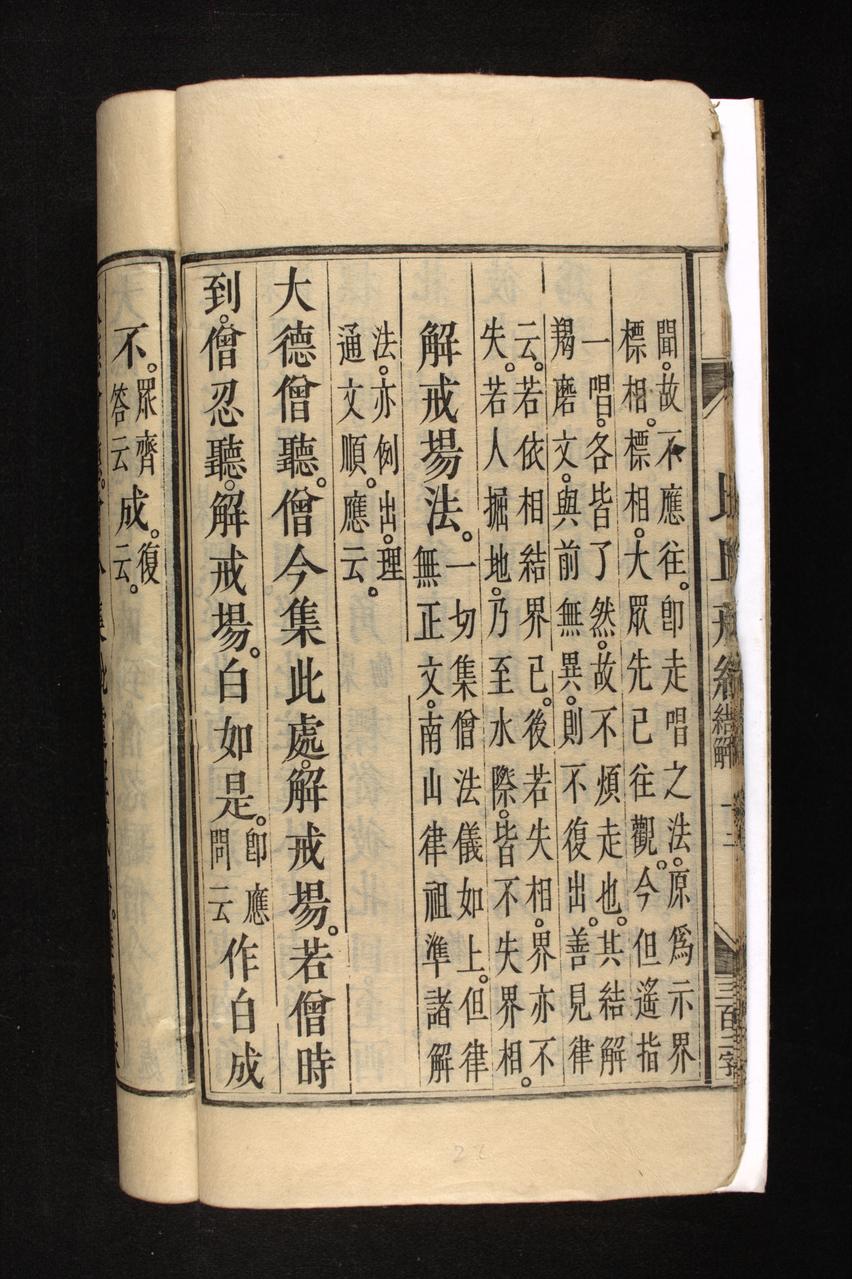 結解
三百二字
聞。故不應往。卽走唱之法。原爲示界
標相。標相。大眾先已往觀。今但遙指
一唱。各皆了然。故不煩走也。其結解
羯磨文。與前無異。則不復出。善見律
云。若依相結界已。後若失相。界亦不
失。若人掘地。乃至水際。皆不失界相。
解戒場法。
一切集僧法儀如上。但律
無正文。南山律祖準諸解
法。亦例出。理
通文順。應云。
大德僧聽。僧今集此處。解戒場。若僧時
到。僧忍聽。解戒場。白如是。卽應問云作白成
不。眾齊答云成。復云。